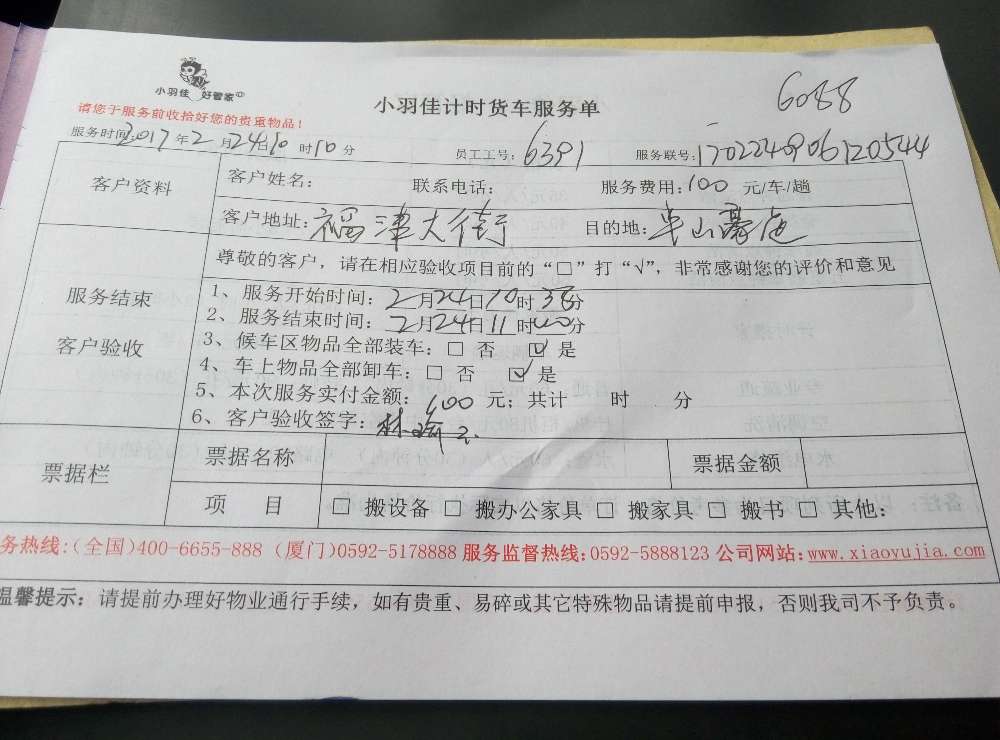 小羽佳 好管家
小羽佳计时货车服务单
6088
请您于服务前收拾好您的贵重物品！
服务时间：2017年2月24日10时10分 员工工号：6391 服务联号：1702240906120544
客户资料
客户姓名： 联系电话： 服务费用：100 元/车/趟
客户地址：福津大街 目的地：半山豪庭
服务结束
客户验收
尊敬的客户，请在相应验收项目前的“□”打“√”，非常感谢您的评价和意见
1、服务开始时间：2月24日10时 分
2、服务结束时间：2月24日11时40分
3、候车区物品全部装车：□ 否 ☑ 是
4、车上物品全部卸车：□ 否 ☑ 是
5、本次服务实付金额： 元；共计 时 分
6、客户验收签字：林
票据栏
票据名称 票据金额
项 目 □ 搬设备 □ 搬办公家具 □ 搬家具 □ 搬书 □ 其他：
务热线：(全国)400-6655-888 (厦门)0592-5178888 服务监督热线：0592-5888123 公司网站：www.xiaoyujia.com
温馨提示：请提前办理好物业通行手续，如有贵重、易碎或其它特殊物品请提前申报，否则我司不予负责。